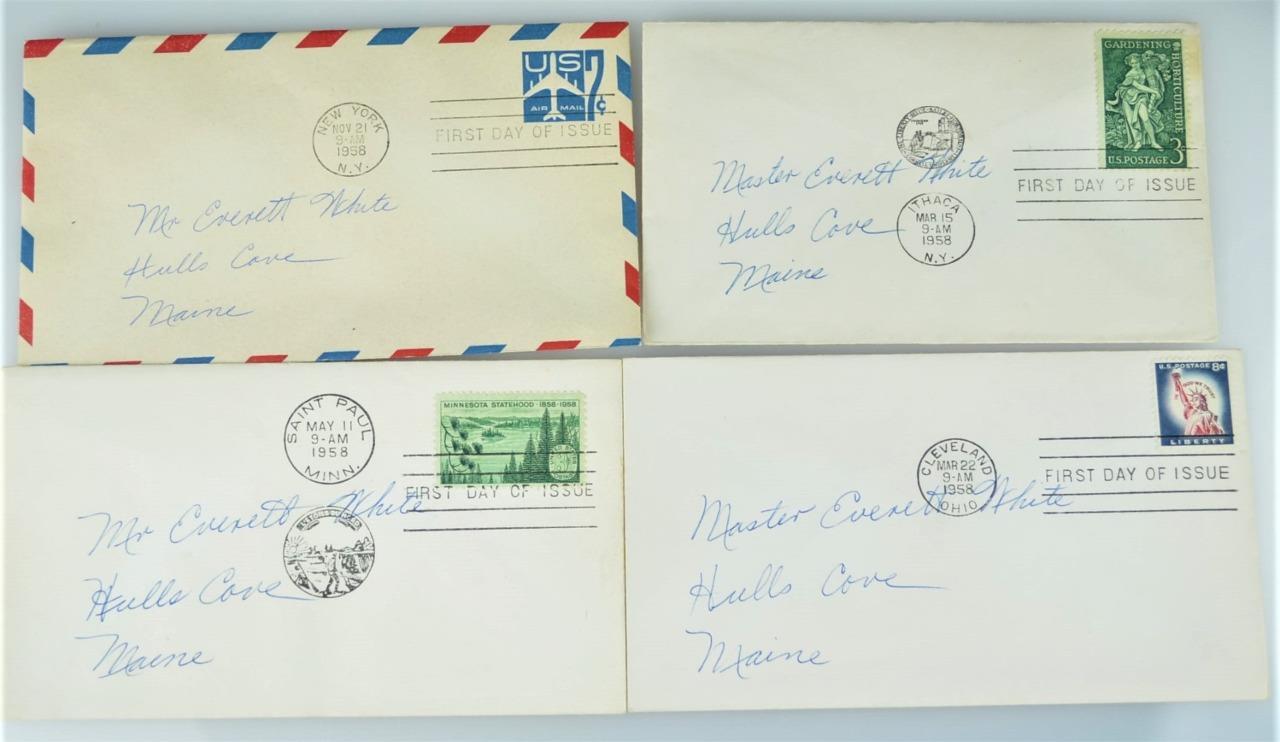 US 7¢
AIR MAIL
NEW YORK
NOV 21
9-AM
1958
N.Y.
FIRST DAY OF ISSUE
Mr Everett White
Hulls Cove
Maine
GARDENING HORTICULTURE
U.S. POSTAGE 3¢
FIRST DAY OF ISSUE
Master Everett White
Hulls Cove
Maine
ITHACA
MAR 15
9-AM
1958
N.Y.
SAINT PAUL
MAY 11
9-AM
1958
MINN.
MINNESOTA STATEHOOD · 1858-1958
FIRST DAY OF ISSUE
Mr Everett White
Hulls Cove
Maine
U.S. POSTAGE 8¢
IN GOD WE TRUST
LIBERTY
CLEVELAND
MAR 22
9-AM
1958
OHIO
FIRST DAY OF ISSUE
Master Everett White
Hulls Cove
Maine